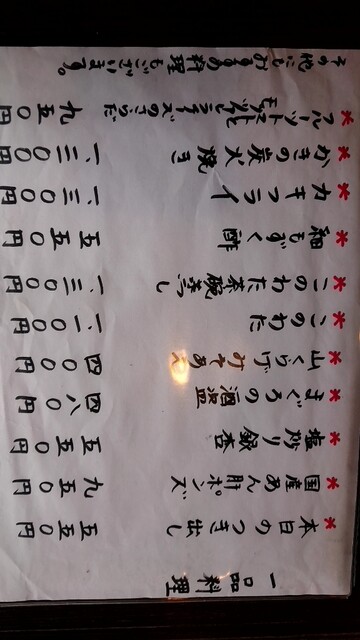 一品料理
*本日のつき出し 五五〇円
*国産あん肝ポンズ 九五〇円
*塩炒り銀杏 五五〇円
*まぐろの酒盗 四八〇円
*山くらげみそあえ 四〇〇円
*このわた 一、一〇〇円
*このわた茶碗蒸し 一、三〇〇円
*細もずく酢 五五〇円
*カキフライ 一、三〇〇円
*かきの炭火焼き 一、三〇〇円
*フルーツトマトと
九五〇円
その他にも料理もございます。